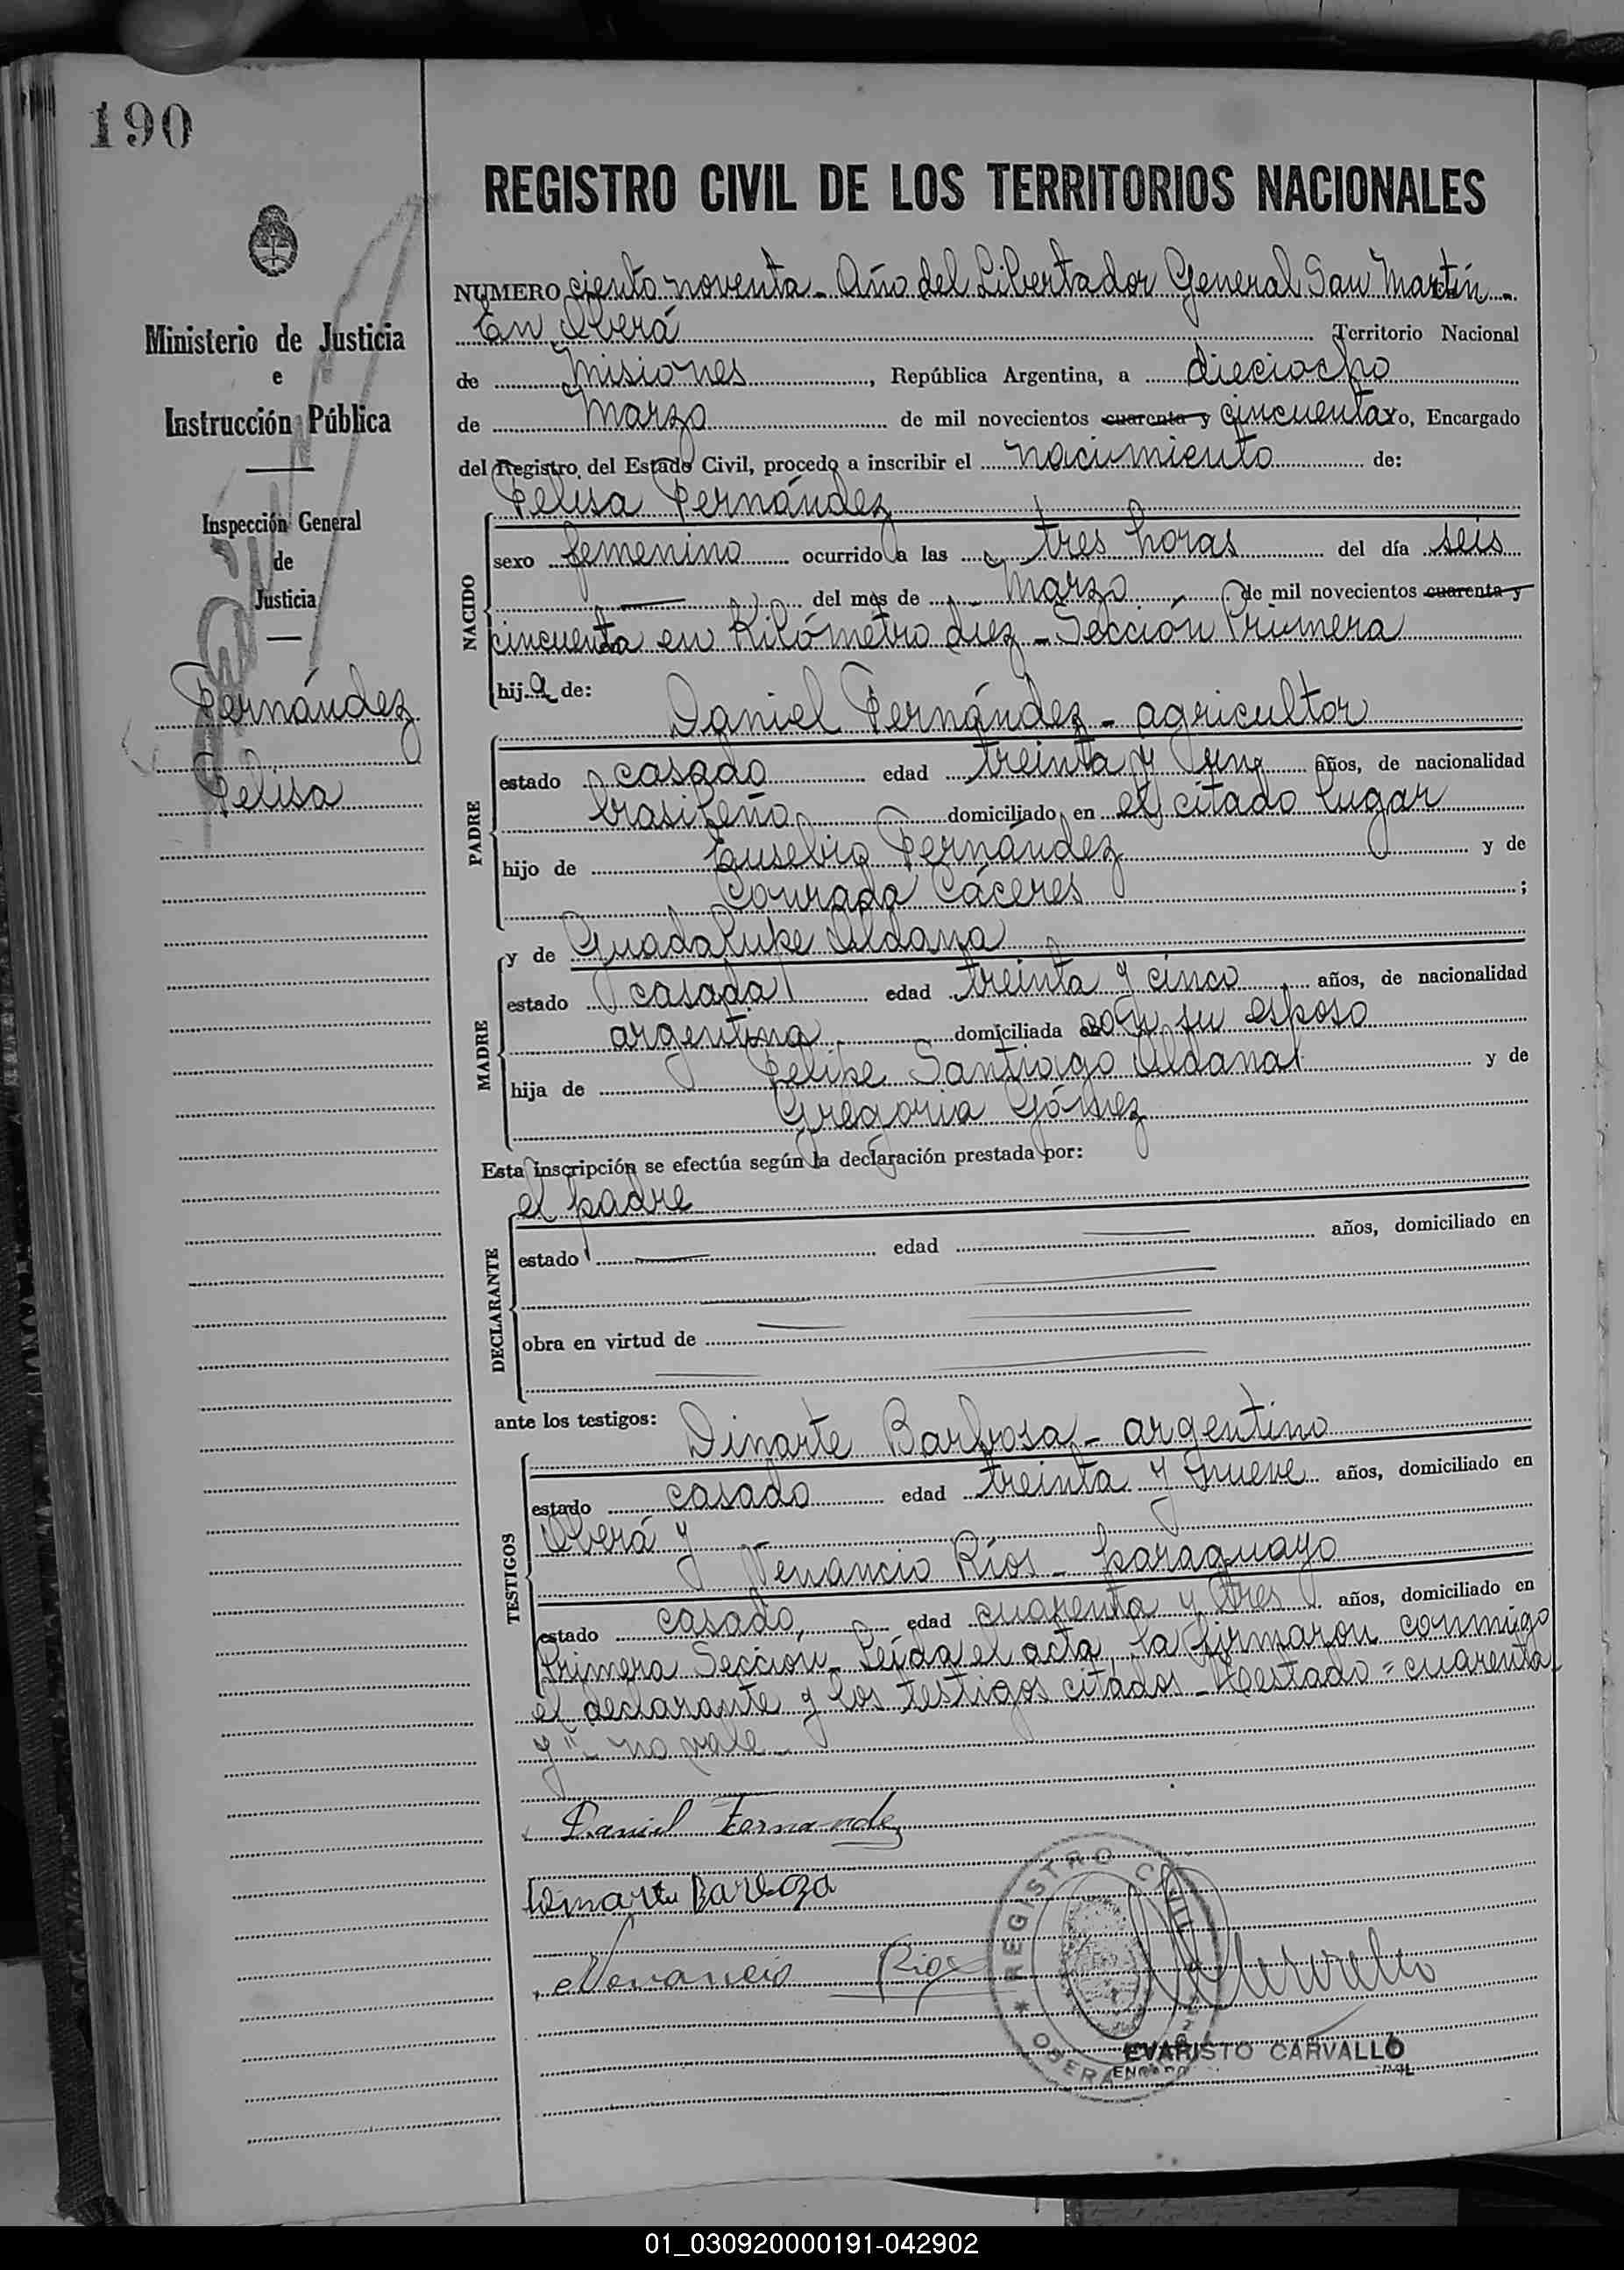 190
REGISTRO CIVIL DE LOS TERRITORIOS NACIONALES
Ministerio de Justicia
e
Instrucción Pública
Inspección General
de
Justicia
Fernández
Felisa
NUMERO ciento noventa - Año del Libertador General San Martín -
En Oberá Territorio Nacional
de Misiones, República Argentina, a dieciocho
de Marzo de mil novecientos cuarenta y cincuenta yo, Encargado
del Registro del Estado Civil, procedo a inscribir el nacimiento de:
Felisa Fernández
NACIDO
sexo femenino ocurrido a las tres horas del día seis
del mes de Marzo de mil novecientos cuarenta y
cincuenta en Kilómetro diez - Sección Primera
hija de:
Daniel Fernández - agricultor
PADRE
estado casado edad treinta y un años, de nacionalidad
brasileño domiciliado en el citado lugar
hijo de Eusebio Fernández y de
Conrada Cáceres;
y de Guadalupe Aldana
MADRE
estado casada edad treinta y cinco años, de nacionalidad
argentina domiciliada con su esposo
hija de Felipe Santiago Aldana y de
Gregoria Gómez
Esta inscripción se efectúa según la declaración prestada por:
el padre
DECLARANTE
estado edad años, domiciliado en
obra en virtud de
ante los testigos:
Dinarte Barbosa - argentino
TESTIGOS
estado casado edad treinta y nueve años, domiciliado en
Oberá y
Venancio Ríos - paraguayo
estado casado, edad cuarenta y tres años, domiciliado en
Primera Sección - Leída el acta, la firmaron conmigo
el declarante y los testigos citados - Testado = cuarenta
y" - no vale -
Daniel Fernandez
Barboza
Venancio Rios
REGISTRO CIVIL
OBERA
EVARISTO CARVALLO
01_030920000191-042902